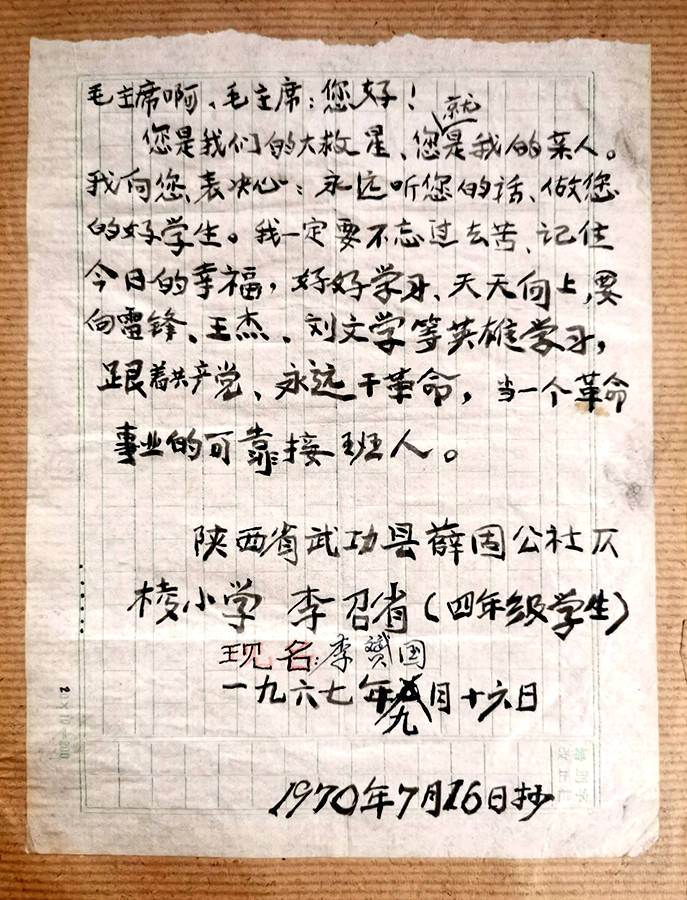 毛主席啊、毛主席：您好！
就
您是我们的大救星、您是我的亲人。
我向您表决心：永远听您的话、做您
的好学生。我一定要不忘过去苦、记住
今日的幸福，好好学习、天天向上，要
向雷锋、王杰、刘文学等英雄学习，
跟着共产党、永远干革命，当一个革命
事业的可靠接班人。
陕西省武功县薛固公社仄
棱小学 李召省（四年级学生）
现名：李赟国
一九六七年 月十六日
九
1970年7月16日抄